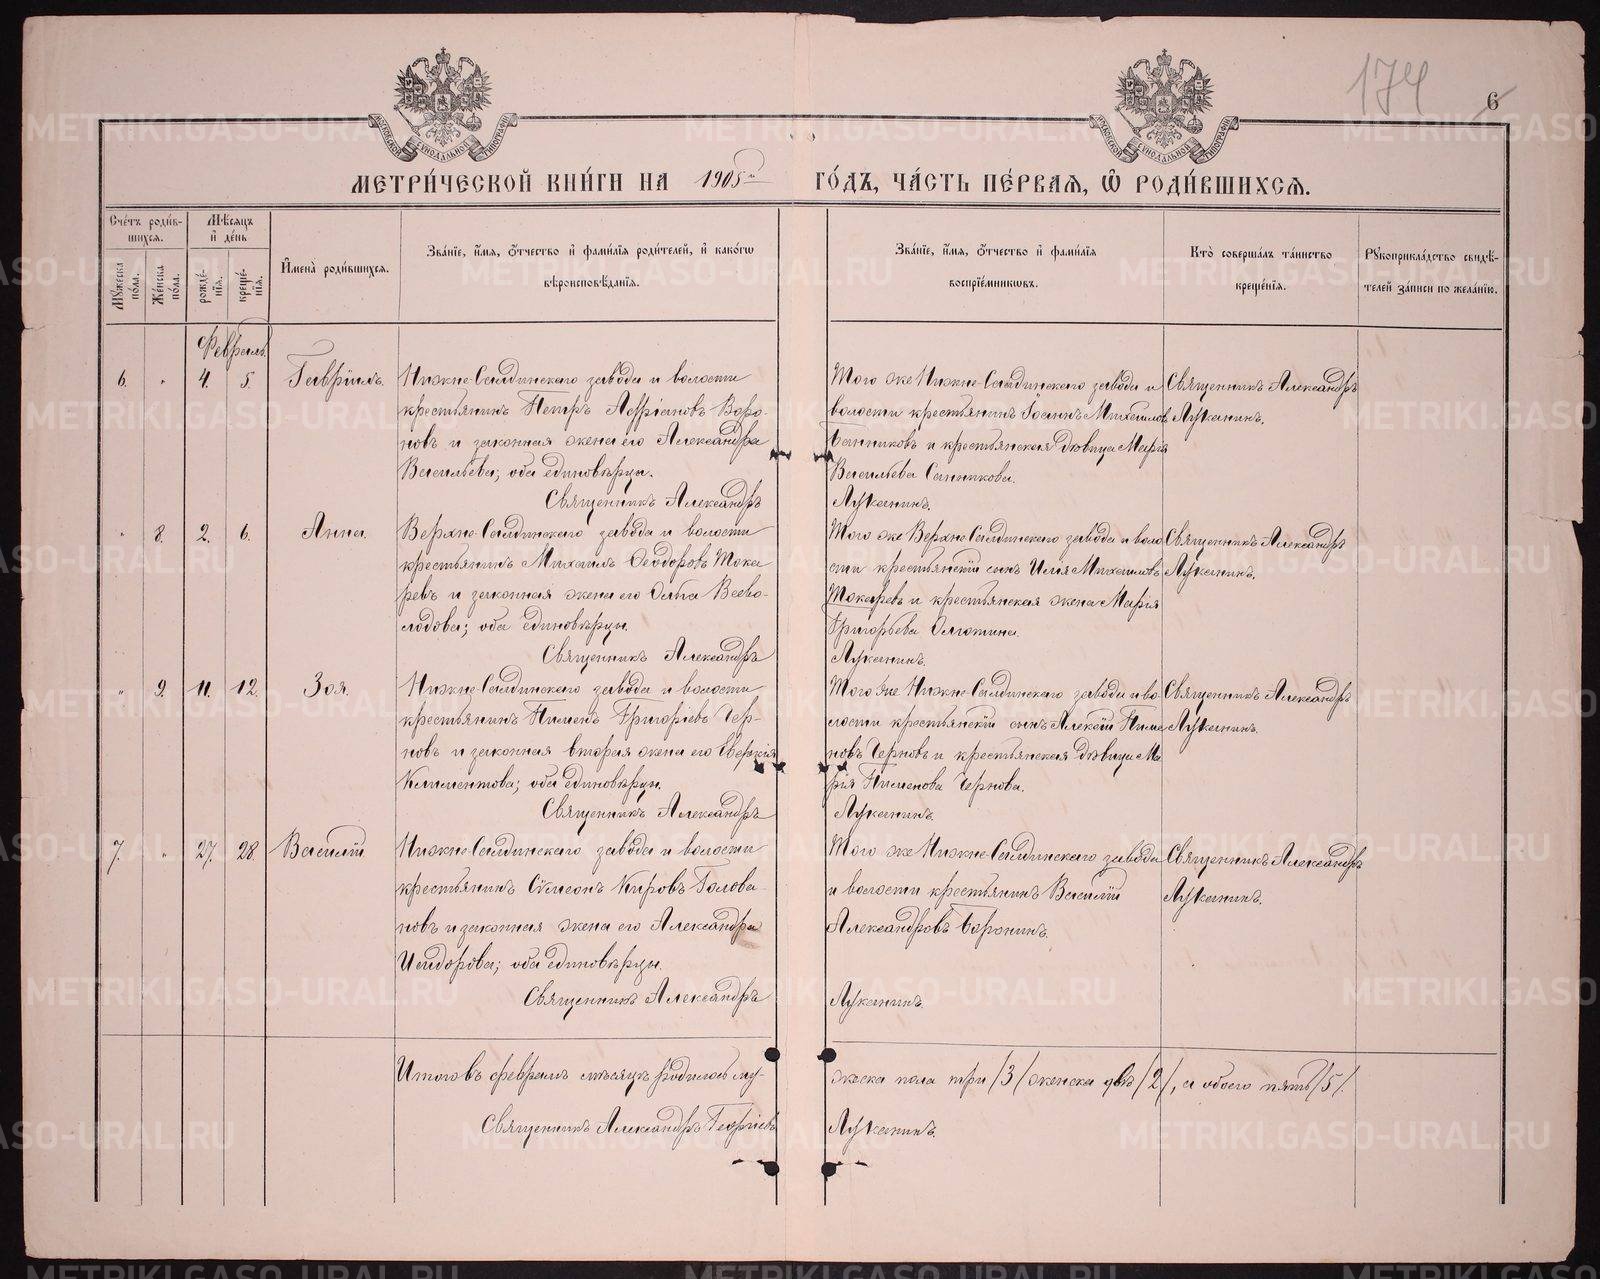 174
6
МЕТРИ́ЧЕСКОЙ КНИ́ГИ НА 1905й ГО́ДЪ, ЧА́СТЬ ПЕ́РВАЯ, Ѽ РОДИ́ВШИХСЯ.
Сче́тъ роди́в-
шихся.
Мꙋ́жеска по́ла.
Же́нска по́ла.
Мѣ́сяцъ
и҆ де́нь
рожде́-
нїя.
креще́-
нїя.
И҆мена̀ роди́вшихся.
Зва́нїе, и҆́мя, ѻ҆́тчество и҆ фами́лїя роди́телей, и҆ како́гѡ
вѣроисповѣ́данїя.
Зва́нїе, и҆́мя, ѻ҆́тчество и҆ фами́лїя
воспрїе́мникѡвъ.
Кто̀ соверша́лъ та́инство
креще́нїя.
Рꙋкоприкла́дство свидѣ́-
телей за́писи по жела́нїю.
Февраль.
6. " 4. 5. Гаврїилъ.
Нижне-Салдинскаго завода и волости
крестьянинъ Петръ Адрїановъ Воро-
новъ и законная жена его Александра
Васильева; оба единовѣрцы.
Священникъ Александръ
Того же Нижне-Салдинскаго завода и
волости крестьянинъ Іоаннъ Михаиловъ
Банниковъ и крестьянская дѣвица Марія
Васильева Санникова.
Луканинъ.
Священникъ Александръ
Луканинъ.
" 8. 2. 6. Анна.
Верхне-Салдинскаго завода и волости
крестьянинъ Михаилъ Ѳеодоровъ Тока
ревъ и законная жена его Ольга Всево-
лодова; оба единовѣрцы.
Священникъ Александръ
Того же Верхне-Салдинскаго завода и воло
сти крестьянскій сынъ Илія Михаиловъ
Токаревъ и крестьянская жена Марія
Григорьева
Луканинъ.
Священникъ Александръ
Луканинъ.
" 9. 11. 12. Зоя.
Нижне-Салдинскаго завода и волости
крестьянинъ Пименъ Григоріевъ Чер-
новъ и законная вторая жена его
Климентова; оба единовѣрцы.
Священникъ Александръ
Того же Нижне-Салдинскаго завода и во-
лости крестьянскій сынъ Алексій Пиме
новъ Черновъ и крестьянская дѣвица Ма
рія Пименова Чернова.
Луканинъ.
Священникъ Александръ
Луканинъ.
7. " 27. 28. Василій
Нижне-Салдинскаго завода и волости
крестьянинъ Сѵмеонъ Кировъ Голова-
новъ и законная жена его Александра
Исидорова; оба единовѣрцы.
Священникъ Александръ
Того же Нижне-Салдинскаго завода
и волости крестьянинъ Василій
Александровъ Воронинъ.
Луканинъ.
Священникъ Александръ
Луканинъ.
Итого въ февралѣ мѣсяцѣ родилось му-
жеска пола три /3/ женска двѣ /2/, а обоего пять /5/.
Священникъ Александръ Георгіевъ
Луканинъ.
METRIKI.GASO-URAL.RU